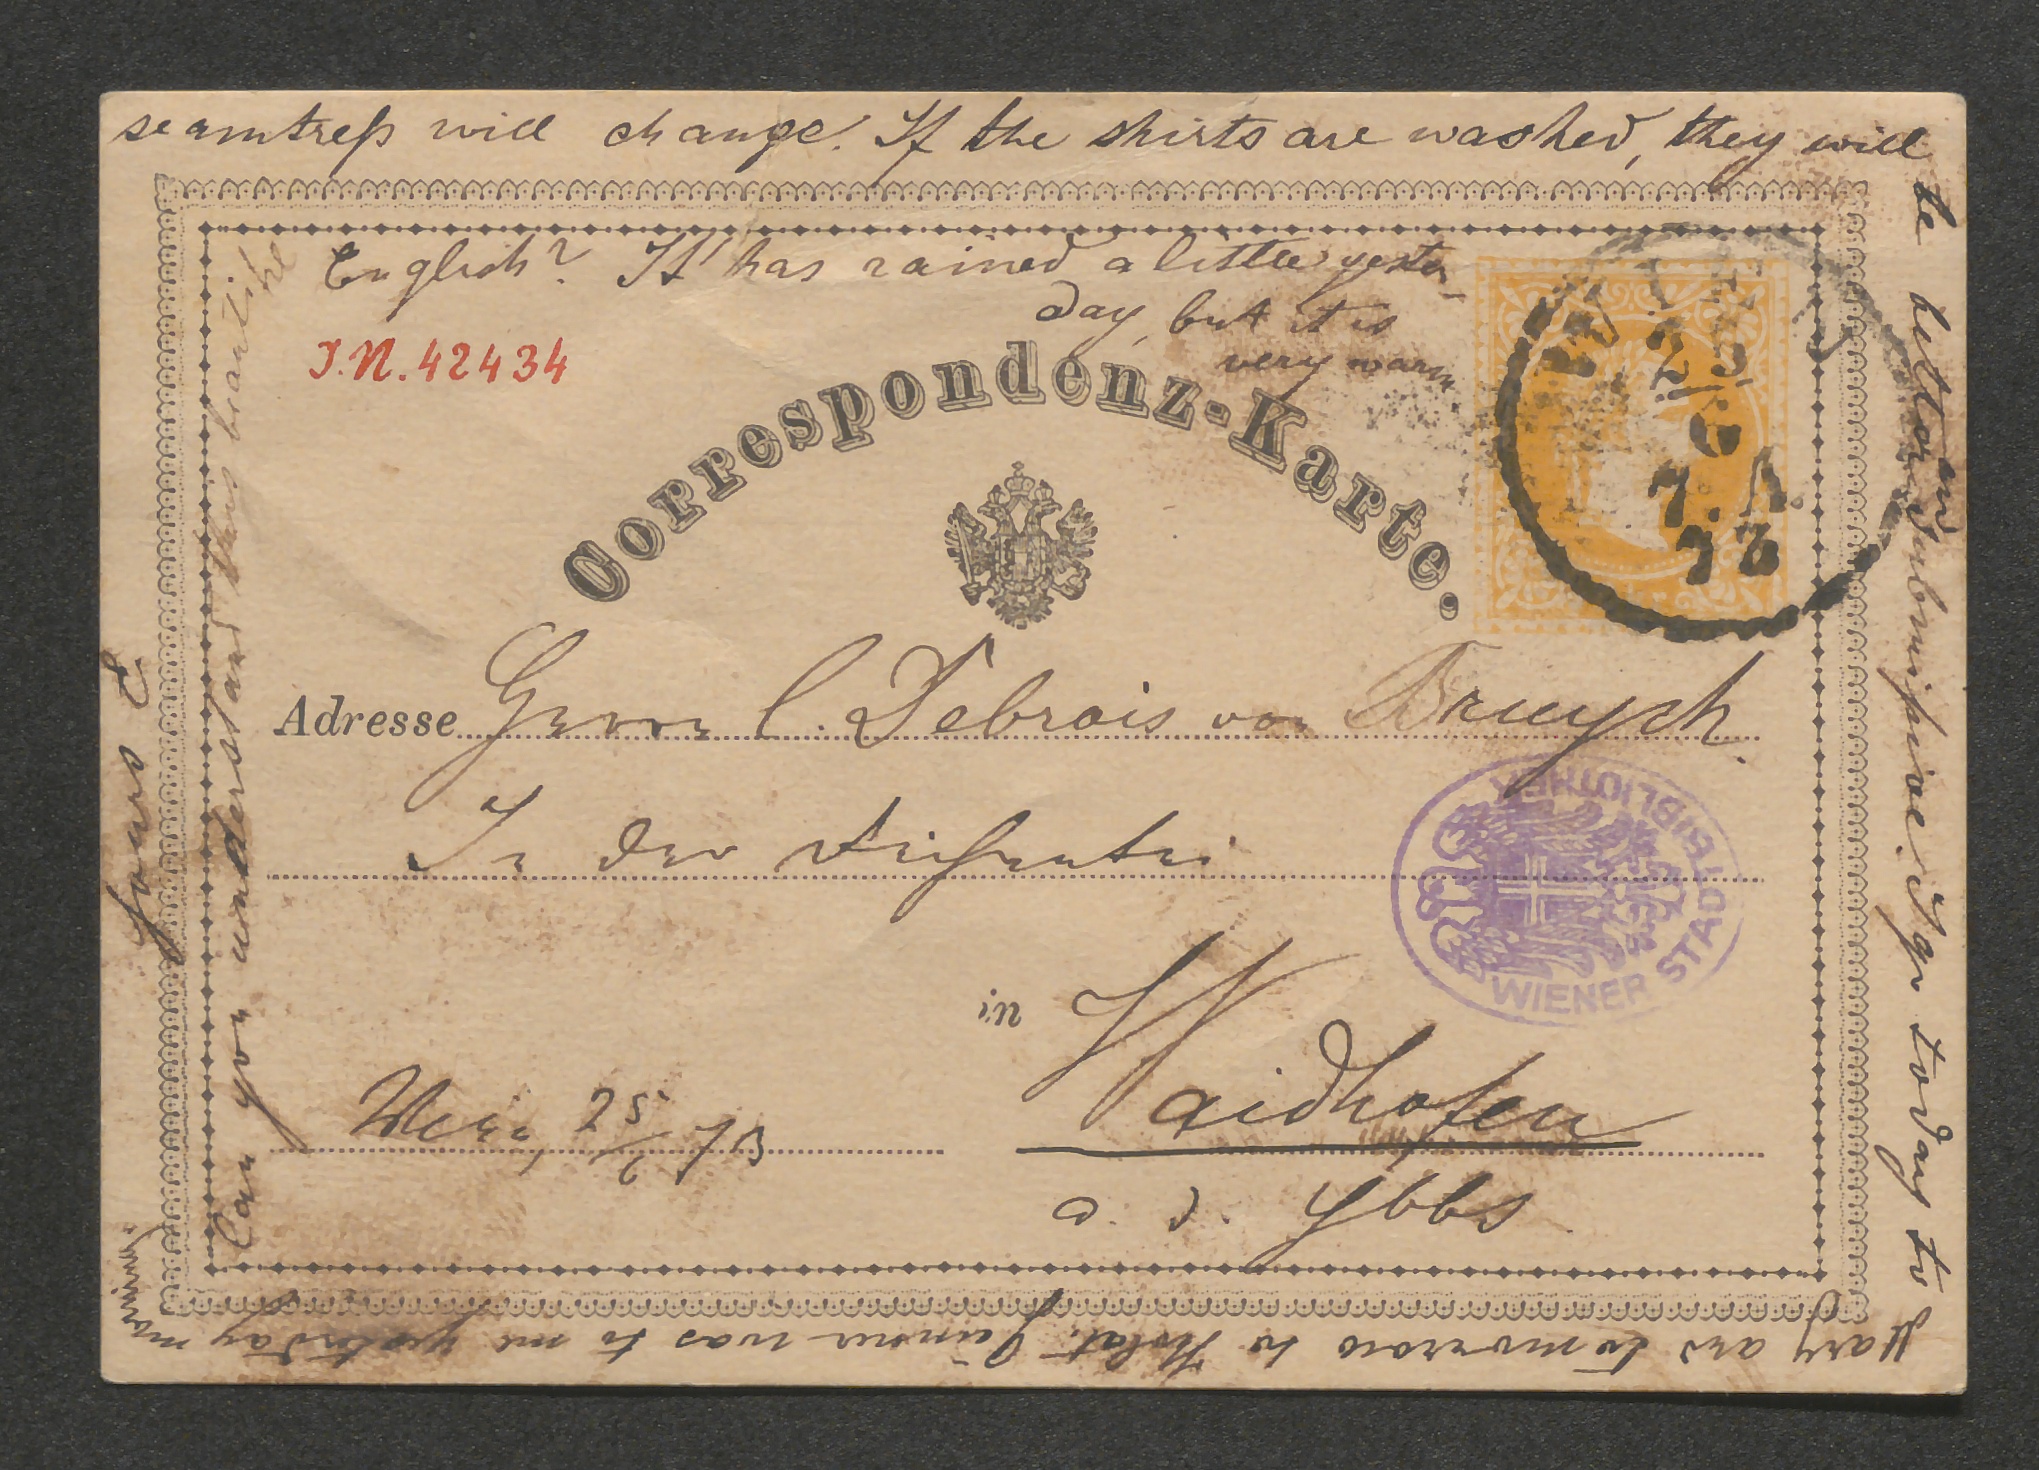 seamtreſs will change. If the shirts are washed, they will
be better and submissive. I go today to
Mary and tomorrow to Kolat. Dumour was to me yesterday
Yours L
Can you understand this beautiful
English? It has rained a little yester-
day, but it is
very warm
J.N. 42434
Correspondenz-Karte.
25
6
7. A.
73
Adresse Herrn C. Debrois von Bruyck
In der
WIENER STADTBIBLIOTHEK
in Waidhofen
Wien, 25/6 73
a. d. Ybbs